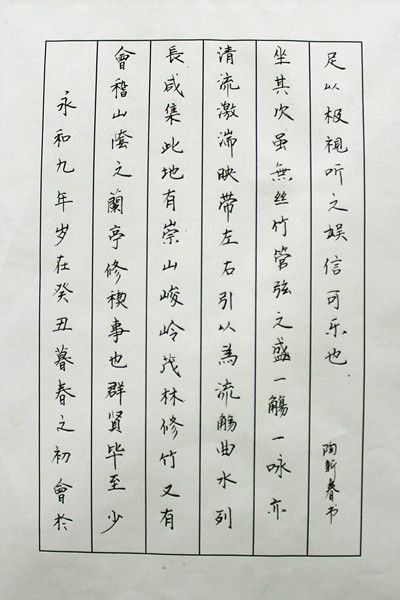 永和九年岁在癸丑暮春之初會於
會稽山陰之蘭亭修禊事也群贤毕至少
長咸集此地有崇山峻岭茂林修竹又有
清流激湍映带左右引以為流觴曲水列
坐其次虽無丝竹管弦之盛一觴一咏亦
足以极視听之娱信可乐也
陶新春书